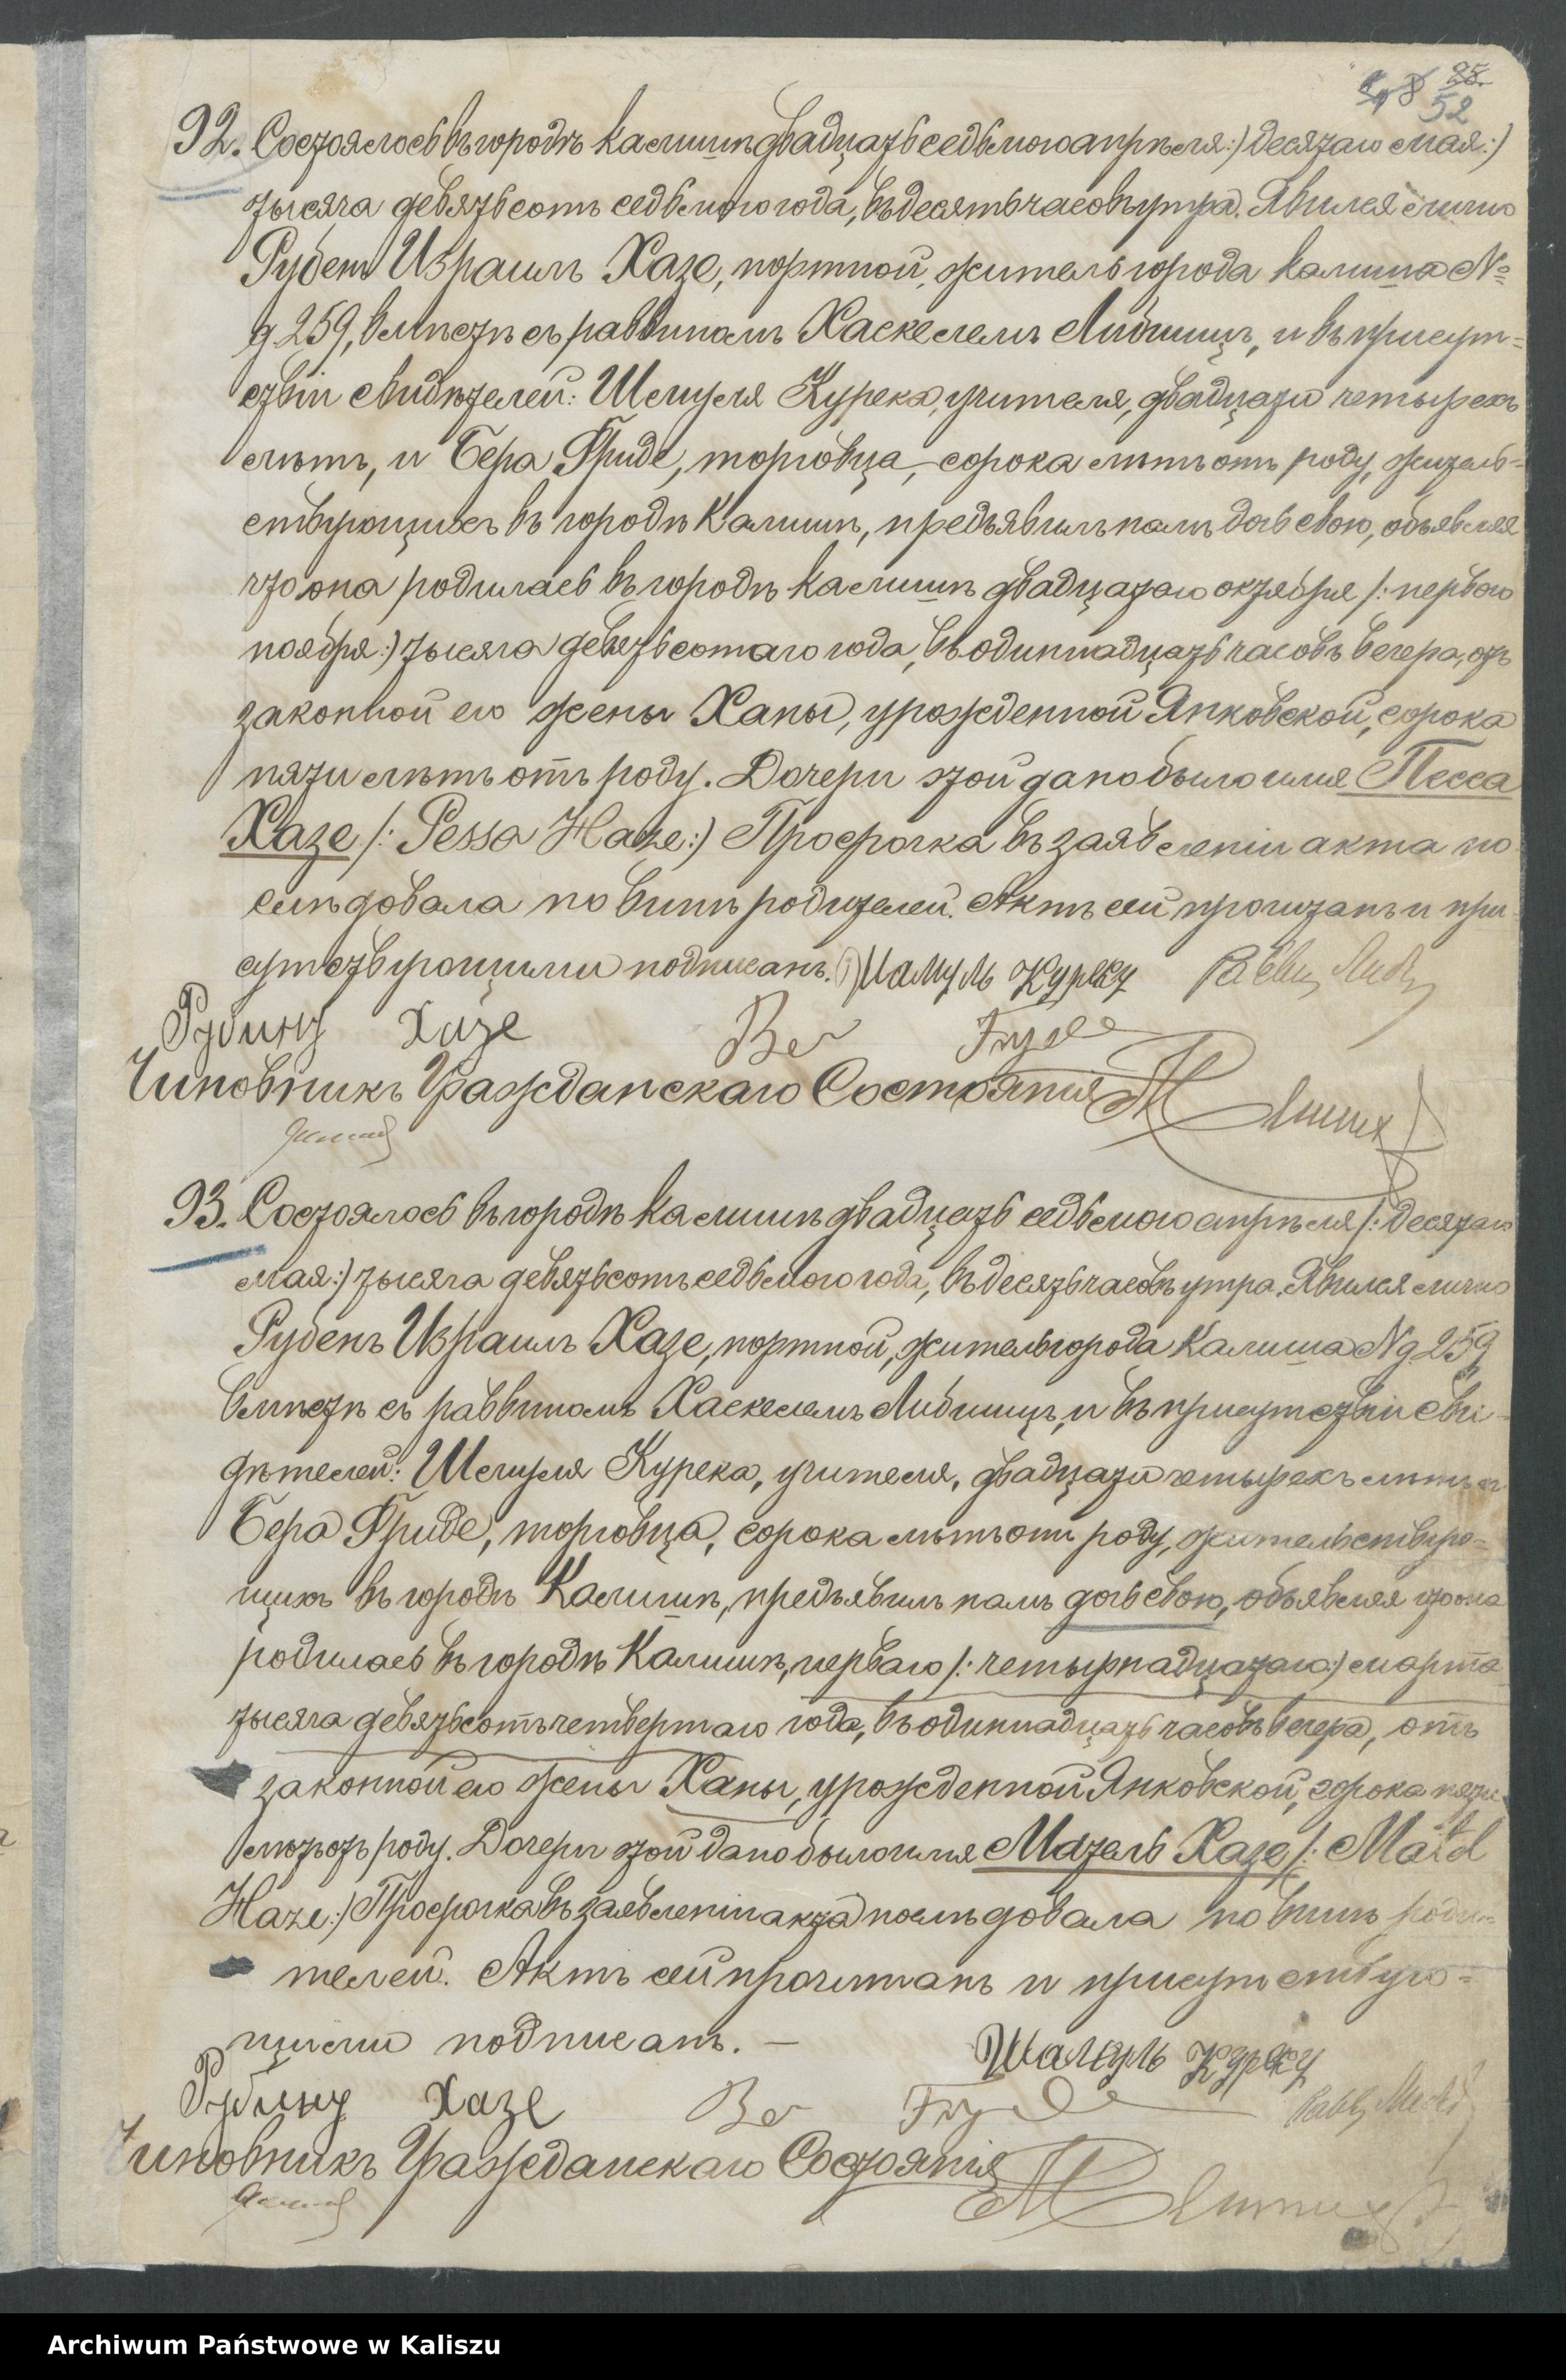 85.
52
92. Состоялось въ городѣ Калишѣ двадцать седьмого апрѣля :) десятаго мая :)
тысяча девятьсотъ седьмого года, въ десять часовъ утра. Явился лично
Рубенъ Израиль Хазе, портной, житель города Калиша №
д 259, вмѣстѣ съ раввиномъ Хаскелемъ Либшицъ, и въ присут=
ствіи свидѣтелей: Шмуля Курека, учителя, двадцати четырехъ
лѣтъ, и Бера Фриде, торговца, сорока лѣтъ отъ роду, житель=
ствующихъ въ городѣ Калишѣ, предъявилъ намъ дочь свою, объявляя
что она родилась въ городѣ Калишѣ двадцатаго октября /: перваго
ноября :) тысяча девятьсотаго года, въ одиннадцать часовъ вечера, отъ
законной его жены Ханы, урожденной Янковской, сорока
пяти лѣтъ отъ роду. Дочери этой дано было имя Песса
Хазе /: Pessa Haze :) Просрочка въ заявленіи акта по
слѣдовала по винѣ родителей. Актъ сей прочитанъ и при
сутствующими подписанъ. Шамуль Куреку Раввин Либ
Рубину Хазе Ber Fryde
Чиновникъ Гражданскаго Состоянія
93. Состоялось въ городѣ Калишѣ двадцать седьмого апрѣля /: десятаго
мая :) тысяча девятьсотъ седьмого года, въ десять часовъ утра. Явился лично
Рубенъ Израиль Хазе, портной, житель города Калиша № д 259
вмѣстѣ съ раввиномъ Хаскелемъ Либшицъ, и въ присутствіи сви-
дѣтелей: Шмуля Курека, учителя, двадцати четырехъ лѣтъ и
Бера Фриде, торговца, сорока лѣтъ отъ роду, жительствую=
щихъ въ городѣ Калишѣ, предъявилъ намъ дочь свою, объявляя что она
родилась въ городѣ Калишѣ, перваго /: четырнадцатаго :) марта
тысяча девятьсотъ четвертаго года, въ одиннадцать часовъ вечера, отъ
законной его жены Ханы, урожденной Янковской, сорока пяти
лѣтъ отъ роду. Дочери этой дано было имя Матель Хазе /: Matel
Haze :) Просрочка въ заявленіи акта послѣдовала по винѣ роди=
телей. Актъ сей прочитанъ и присутствую=
щими подписанъ. —
Шамуль Куреку
Рубину Хазе Ber Fryde
Чиновникъ Гражданскаго Состоянія
Archiwum Państwowe w Kaliszu